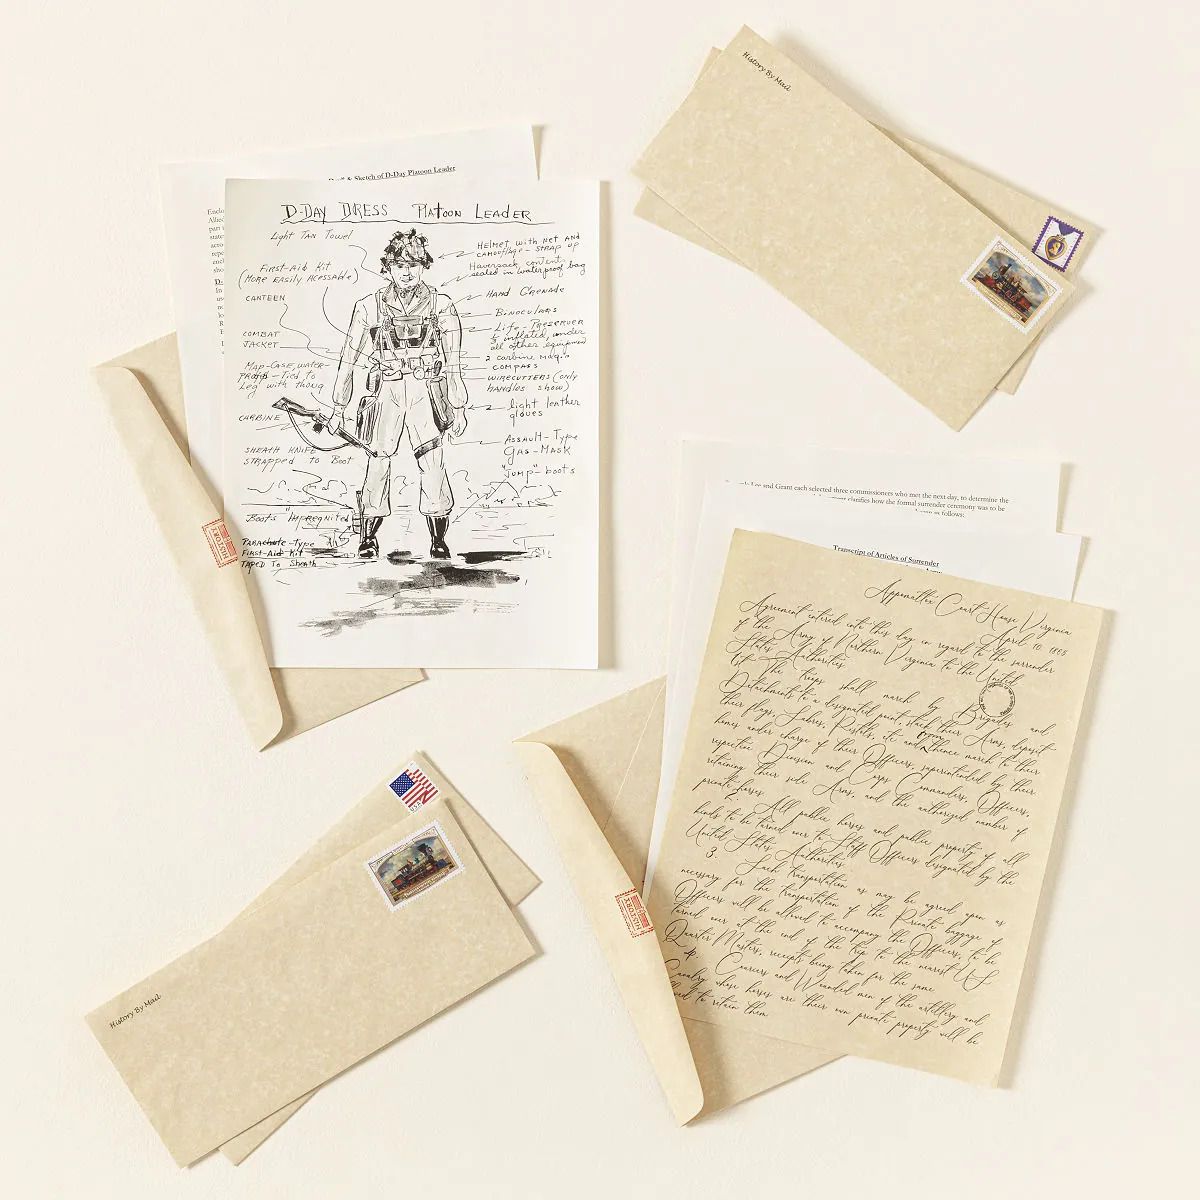 History By Mail
Sketch of D-Day Platoon Leader
D-DAY DRESS PLATOON LEADER
Light TAN Towel
First-Aid Kit
(MORE EASILY ACESSABLE)
CANTEEN
COMBAT
JACKET
MAP-CASE, WATER-
PROOF - Tied to
Leg with thong
CARBINE
SHEATH KNIFE
STRAPPED to Boot
Boots "Impregnited"
PARAchute-Type
First-Aid Kit
TAPED To Sheath
HELMET with net AND
CAMOUFLAGE - STRAP UP
Haversack contents
sealed in waterproof bag
HAND GRENADE
BINOCULARS
Life-Preserver
½ inflated, under
all other equipment
2 carbine mag's
COMPASS
WIRECUTTERS (only
handles show)
light leather
gloves
ASSAULT-Type
GAS-MASK
"Jump"-boots
HISTORY
Lee and Grant each selected three commissioners who met the next day, to determine the
clarifies how the formal surrender ceremony was to be
as follows:
Transcript of Articles of Surrender
Appomattox Court House Virginia
April 10. 1865
Agreement entered into this day in regard to the surrender
of the Army of Northern Virginia to the United
States Authorities
1st The troops shall march by Brigades and
Detachments to a designated point, stack their Arms, deposit
their flags, Sabres, Pistols, etc and thence march to their
homes under charge of their Officers, superintended by their
respective Division and Corps Commanders, Officers,
retaining their side Arms, and the authorized number of
private horses.
2. All public horses and public property of all
kinds to be turned over to Staff Officers designated by the
United States Authorities
3. Such transportation as may be agreed upon as
necessary for the transportation of the Private baggage of
Officers will be allowed to accompany the Officers, to be
turned over at the end of the trip to the nearest U.S.
Quarter Masters, receipts being taken for the same
4. Couriers and Wounded men of the artillery and
Cavalry whose horses are their own private property will be
to retain them
HISTORY
USA
History By Mail